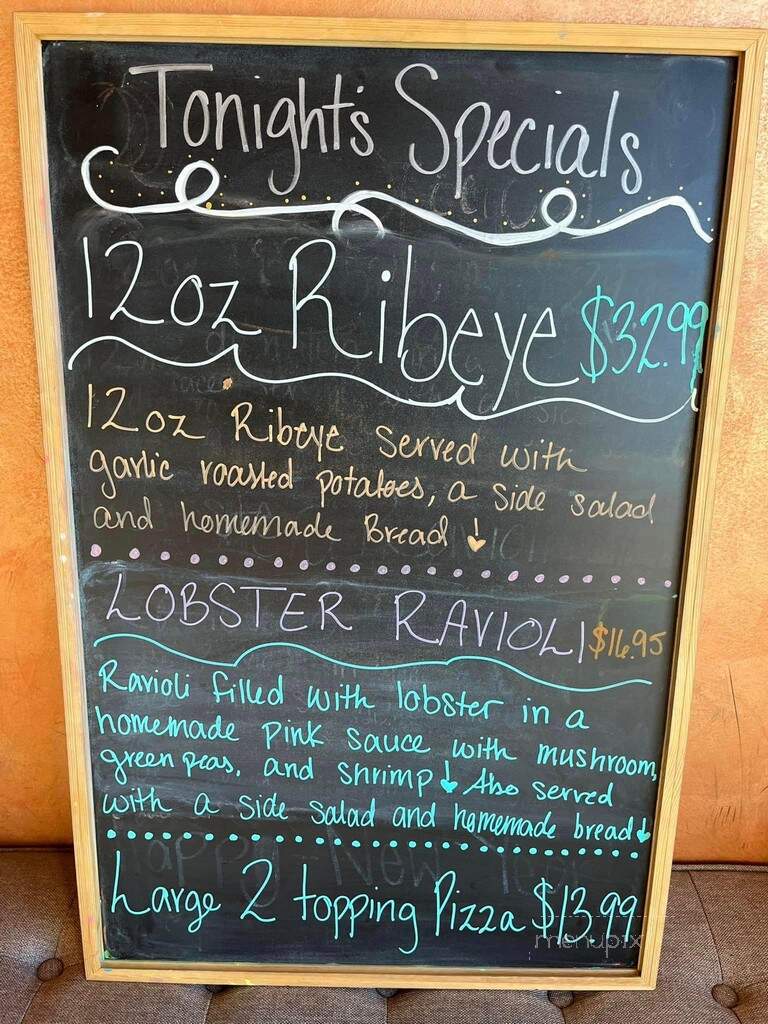 Tonight's Specials
12oz Ribeye $32.99
12oz Ribeye served with
garlic roasted potatoes, a side salad
and homemade Bread
LOBSTER RAVIOLI $16.95
Ravioli filled with lobster in a
homemade pink sauce with mushroom,
green peas, and shrimp Also served
with a side salad and homemade bread
Large 2 topping Pizza $13.99
menupix